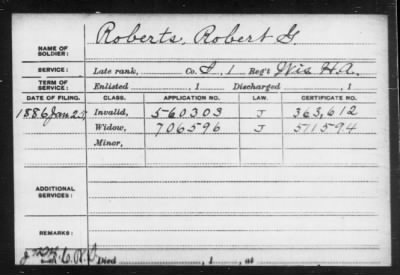 NAME OF SOLDIER: Roberts, Robert G.
SERVICE: Late rank, Co. I, 1 Reg't Wis H.A.
TERM OF SERVICE: Enlisted , 1 Discharged , 1
DATE OF FILING. CLASS. APPLICATION NO. LAW. CERTIFICATE NO.
1886 Jan 23 Invalid, 560303 J 363,612
Widow, 706596 J 511594
Minor,
ADDITIONAL SERVICES:
REMARKS:
Died , 1 , at